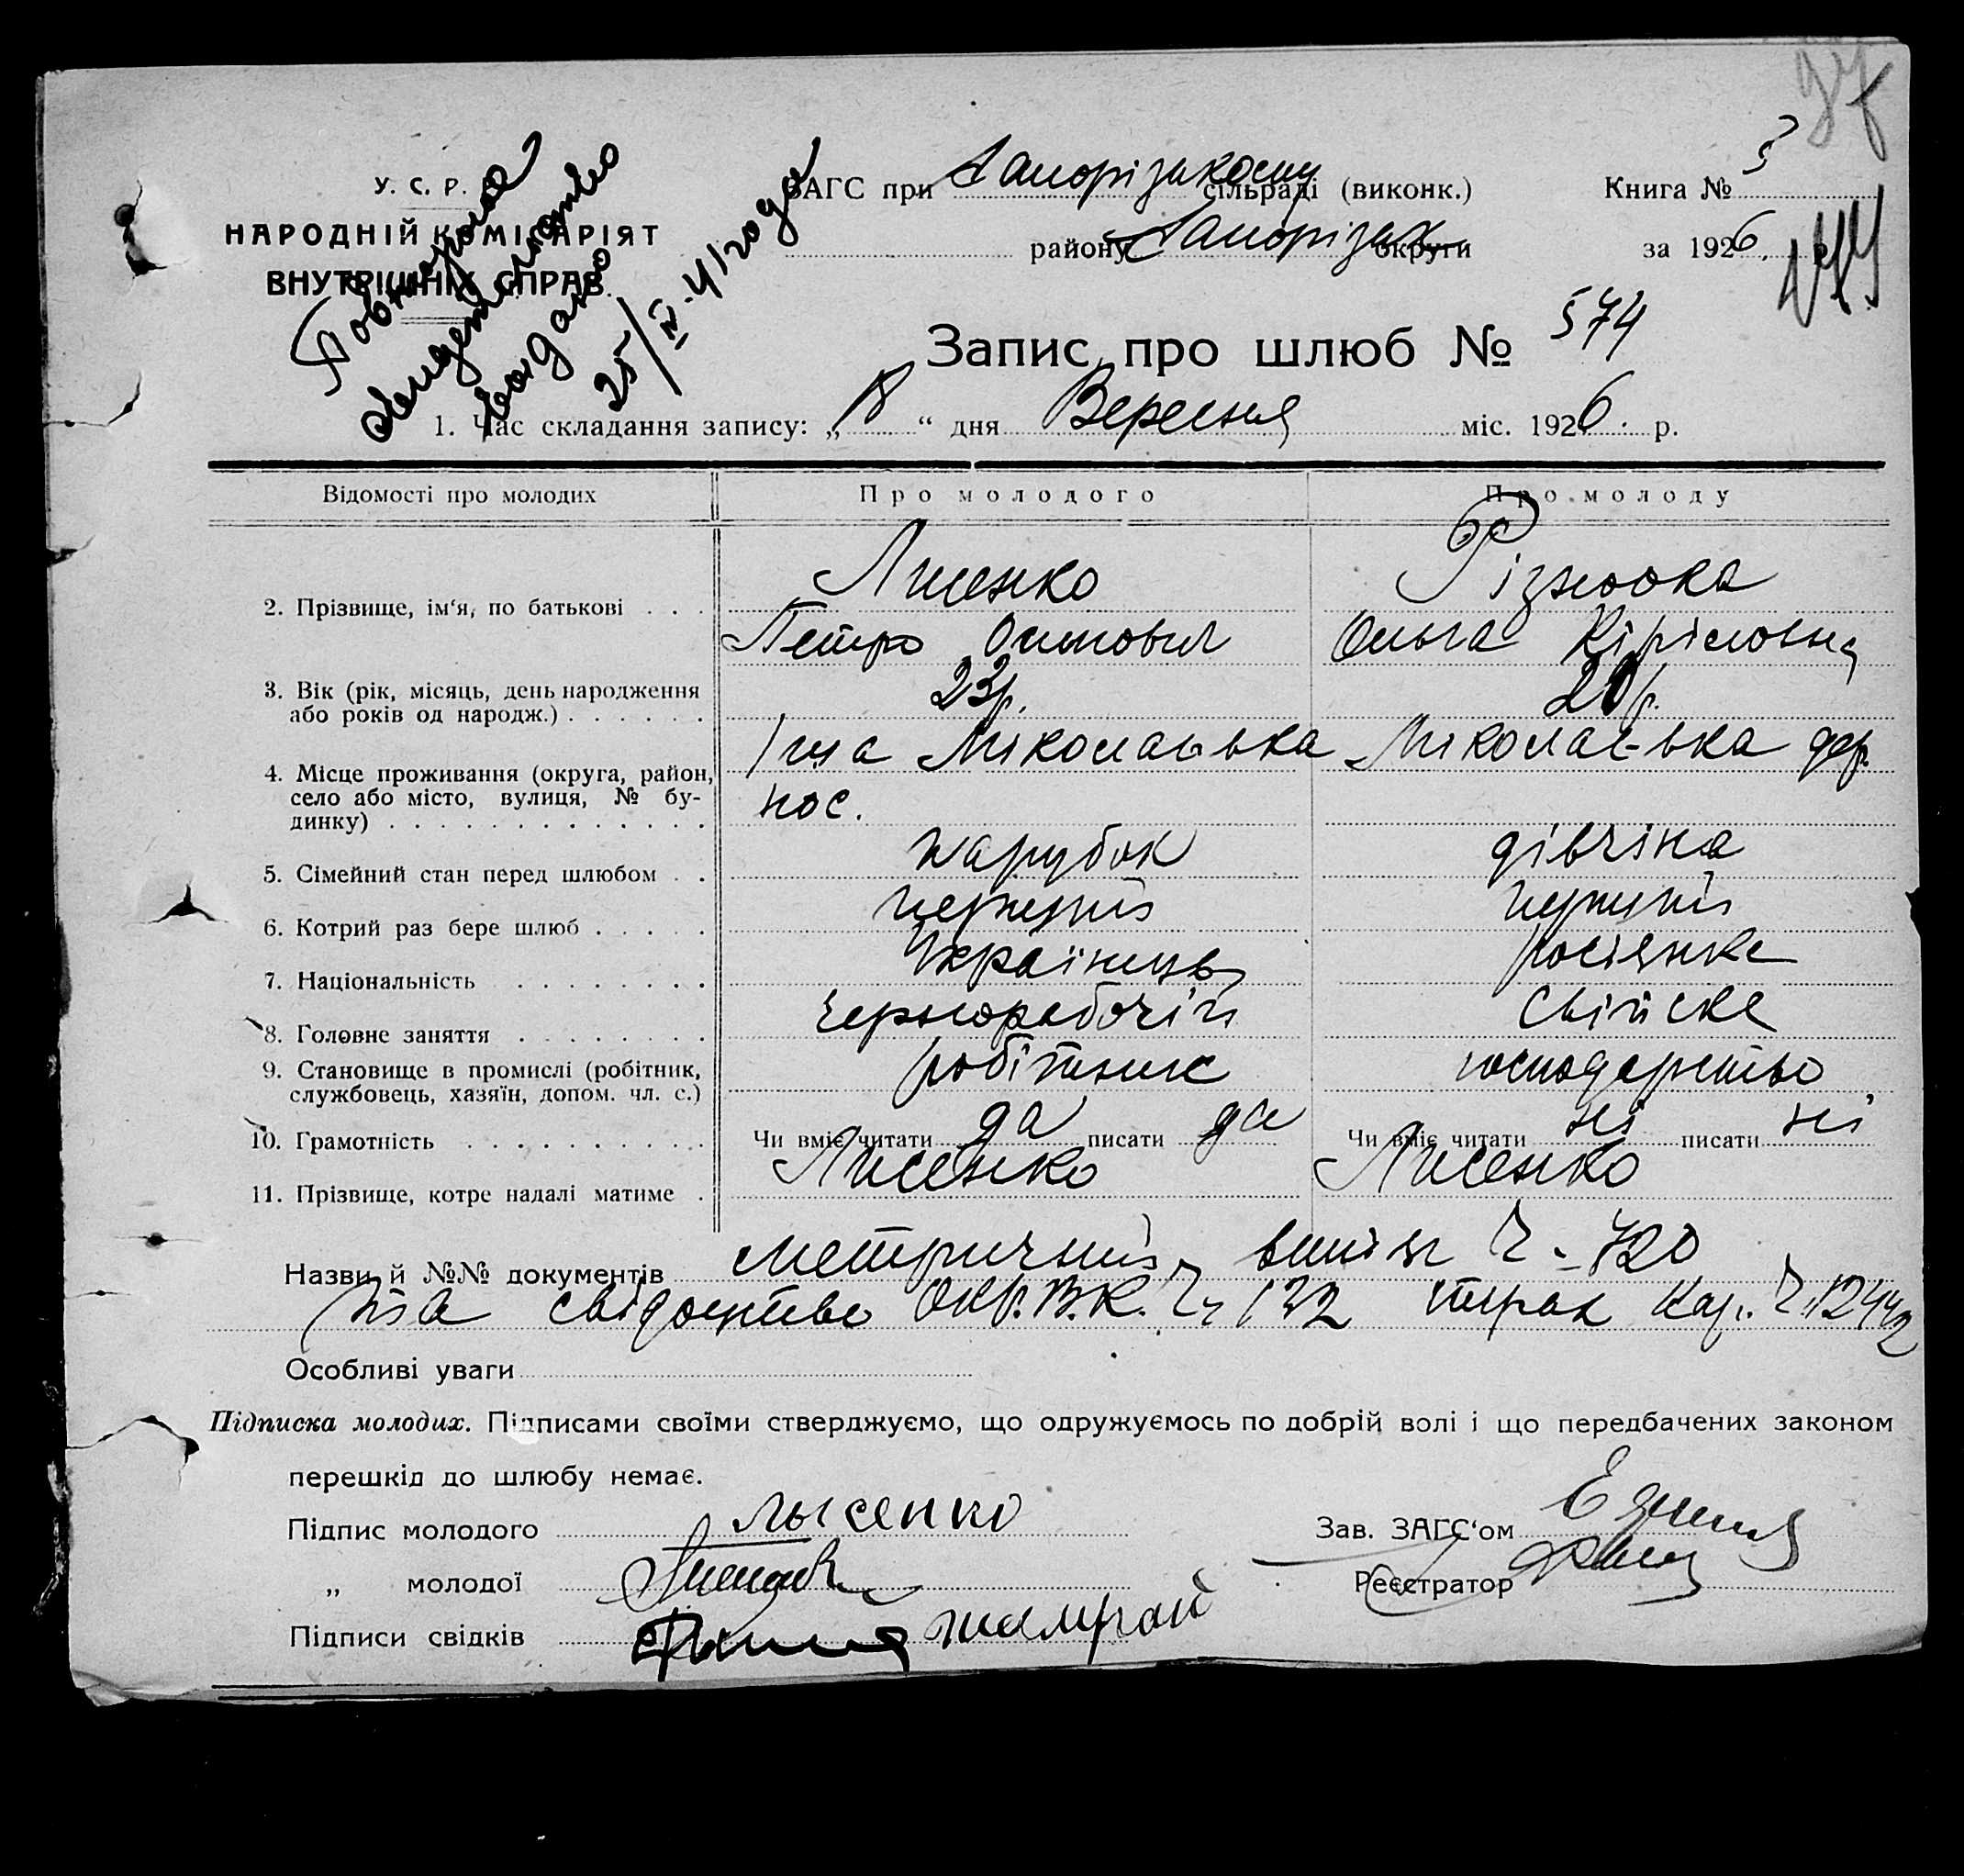 У. С. Р.
НАРОДНІЙ КОМІСАРІЯТ
ВНУТРІШНІХ СПРАВ.
Повторное
свидетельство
выдано
25/IV-41 года
ЗАГС при Запорізькому сільраді (виконк.)
Книга № 5
району Запорізьк округи
за 1926 р.
Запис про шлюб № 574
1. Час складання запису: „18“ дня Вересня міс. 1926. р.
Відомості про молодих Про молодого Про молоду
2. Прізвище, ім‘я, по батькові . . . Лисенко Різноока
Петро Ольга Кіріловна
3. Вік (рік, місяць, день народження або років од народж.) . . . . . . 23р. 20р.
4. Місце проживання (округа, район, село або місто, вулиця, № будинку) . . . . Миколаівька Миколаівька дер.
пос.
5. Сімейний стан перед шлюбом . . парубок дівчіна
6. Котрий раз бере шлюб . . . . . перший перший
7. Національність . . . . . . . . Українець росіянка
8. Головне заняття . . . . . . . . чернорабочій свійске
9. Становище в промислі (робітник, службовець, хазяїн, допом. чл. с.) робітник господарство
10. Грамотність . . . . . . . . . . Чи вміє читати да писати да Чи вміє читати ні писати ні
11. Прізвище, котре надалі матиме . Лисенко Лисенко
Назви й №№ документів метричний випис Ч-720
та свідоцтво Окр.В.К. Ч 132 Ч 12442
Особливі уваги
Підписка молодих. Підписами своїми стверджуємо, що одружуємось по добрій волі і що передбачених законом
перешкід до шлюбу немає.
Підпис молодого Лысенко
Зав. ЗАГС‘ом
„ молодої
Реєстратор
Підписи свідків